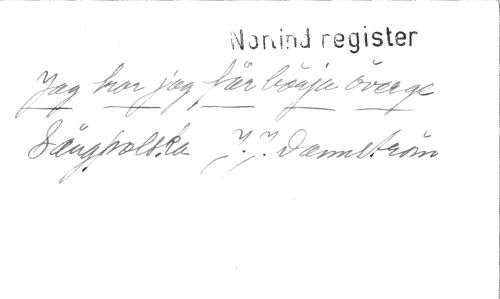 Norlind register
Jag tror jag får börja överge
Sångpolska J. J. Dannström